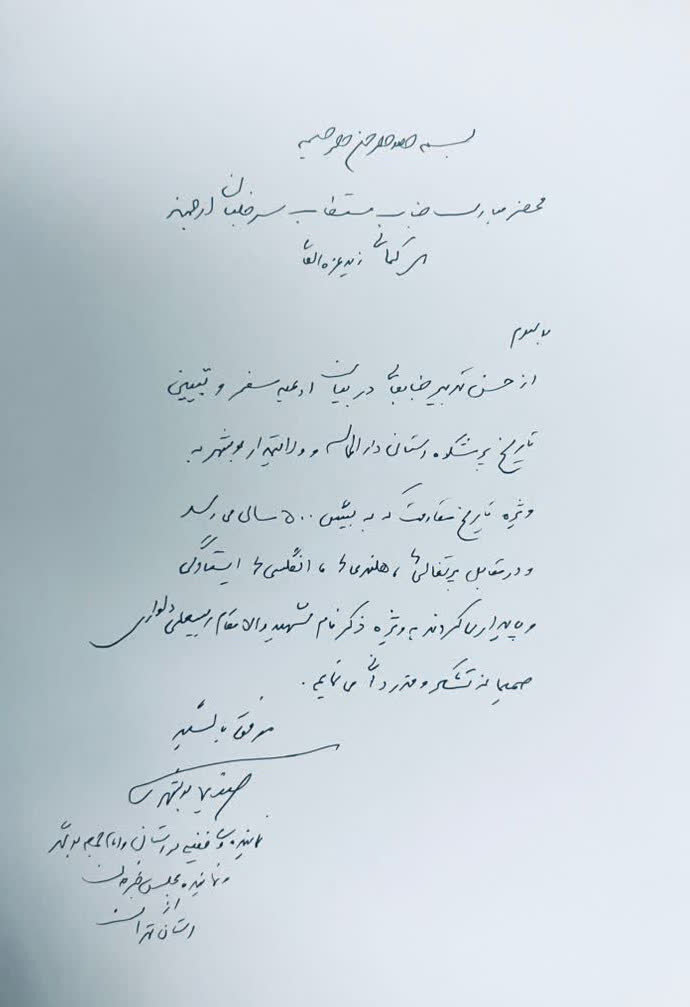 بسم الله الرحمن الرحیم
محضر مبارک جناب مستطاب سر خلبان ارجمند
زید عزه العالی
با سلام
از حسن تدبیر جنابعالی در بیان ادعیه سفر و تبیین
تاریخ پرشکوه استان دارالعلم و ولایتمدار بوشهر به
ویژه تاریخ مقاومت که به بیش ۵۰۰ سال می رسد
و در مقابل پرتغالی ها، هلندی ها، انگلیسی ها ایستادگی
و پایداری کردند به ویژه ذکر نام شهید والامقام رییسعلی دلواری
صمیمانه تشکر و قدردانی می نمایم.
موفق باشید
صفایی بوشهری
نماینده ولی فقیه در استان و امام جمعه بوشهر
و نماینده مجلس خبرگان
از
استان تهران